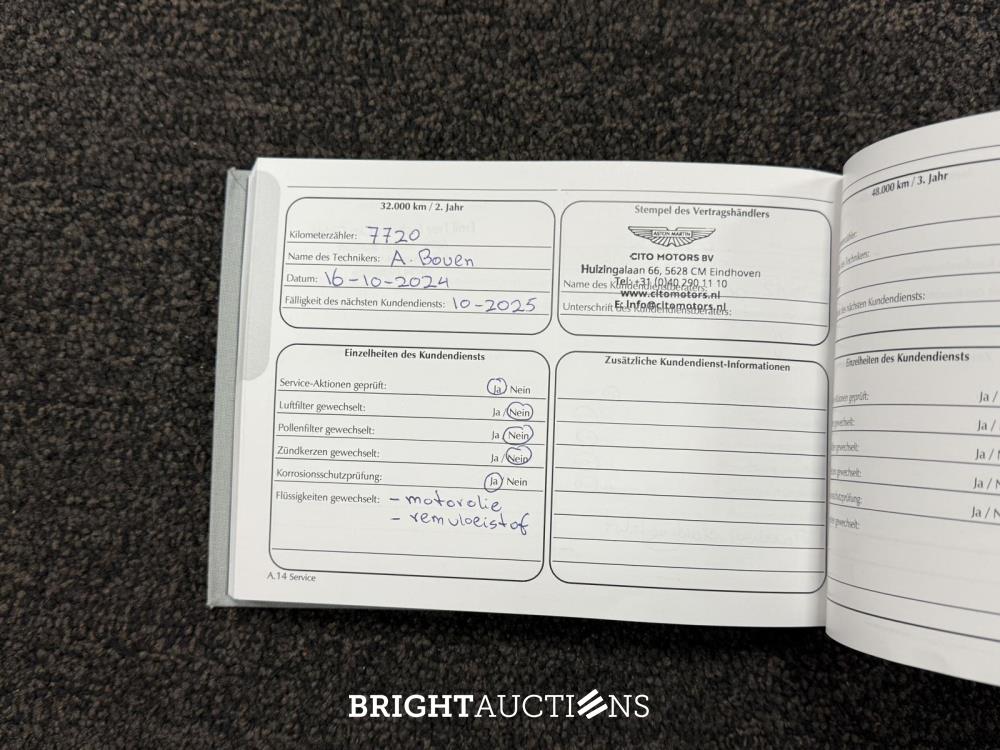 32.000 km / 2. Jahr
Kilometerzähler: 7720
Name des Technikers: A. Boven
Datum: 16-10-2024
Fälligkeit des nächsten Kundendiensts: 10-2025
Stempel des Vertragshändlers
ASTON MARTIN
CITO MOTORS BV
Huizingalaan 66, 5628 CM Eindhoven
Tel: +31 (0)40 290 11 10
Name des Kundendienstberaters:
www.citomotors.nl
E: Info@citomotors.nl
Unterschrift des Kundendienstberaters:
Einzelheiten des Kundendiensts
Service-Aktionen geprüft: Ja / Nein
Luftfilter gewechselt: Ja / Nein
Pollenfilter gewechselt: Ja / Nein
Zündkerzen gewechselt: Ja / Nein
Korrosionsschutzprüfung: Ja / Nein
Flüssigkeiten gewechselt: - motorolie
- remvloeistof
Zusätzliche Kundendienst-Informationen
A.14 Service
48.000 km / 3. Jahr
des Technikers:
des nächsten Kundendiensts:
Einzelheiten des Kundendiensts
geprüft: Ja /
gewechselt: Ja /
gewechselt: Ja /
gewechselt: Ja / N
Ja / N
gewechselt:
BRIGHTAUCTIONS